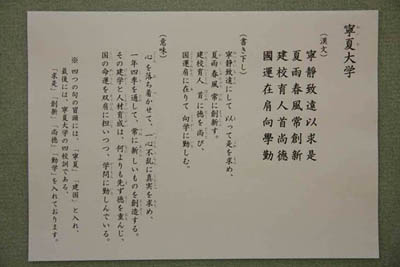 寧夏大学
(漢文)
寧静致遠以求是
夏雨春風常創新
建校育人首尚徳
國運在肩向學勤
(書き下し)
寧静致遠にして 以って是を求め、
夏雨春風 常に創新す。
建校育人 首に徳を尚び、
国運肩に在りて 向学に勤しむ。
(意味)
心を落ち着かせて、一心不乱に真実を求め、
一年四季を通して、常に新しいものを創造する。
その建学と人材育成は、何よりも先ず徳を重んじ、
国の命運を双肩に担いつつ、学問に勤しんでいる。
※ 四つの句の冒頭には、「寧夏」「建国」と入れ、
最後には、寧夏大学の四校訓である、
「求是」「創新」「尚徳」「勤学」を入れております。